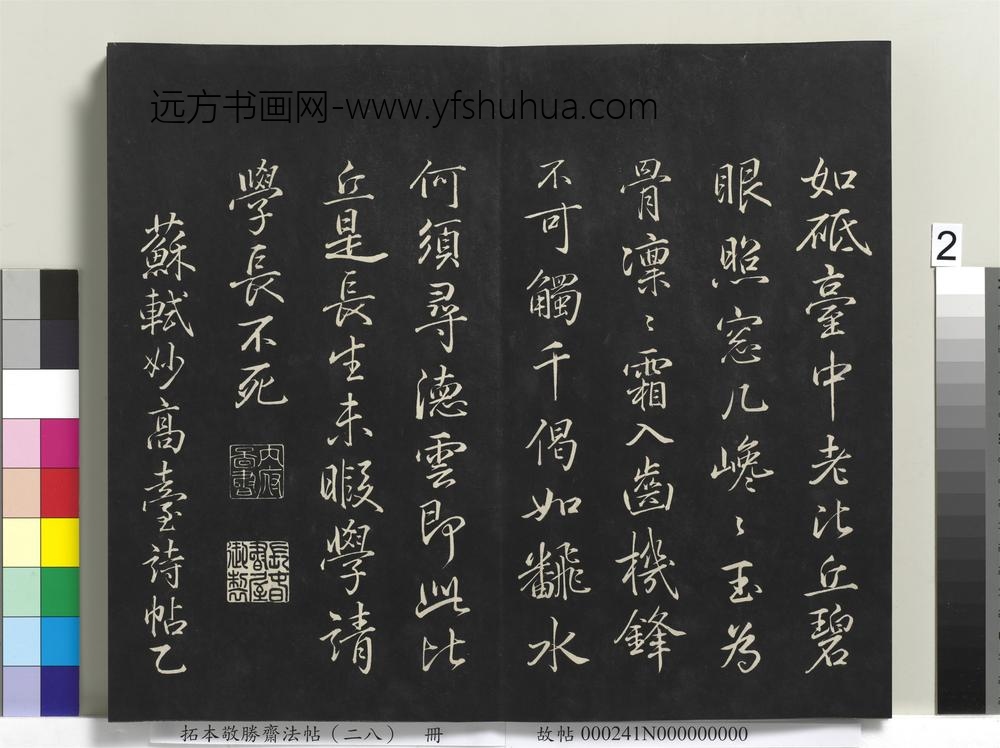 远方书画网-www.yfshuhua.com
如砥臺中老比丘碧
眼照窓几巉〻玉為
骨凛〻霜入齒機鋒
不可觸千偈如飜水
何須尋德雲即此比
丘是長生未暇學請
學長不死
蘇軾妙高臺詩帖乙
2
拓本敬勝齋法帖（二八） 冊 故帖 000241N000000000